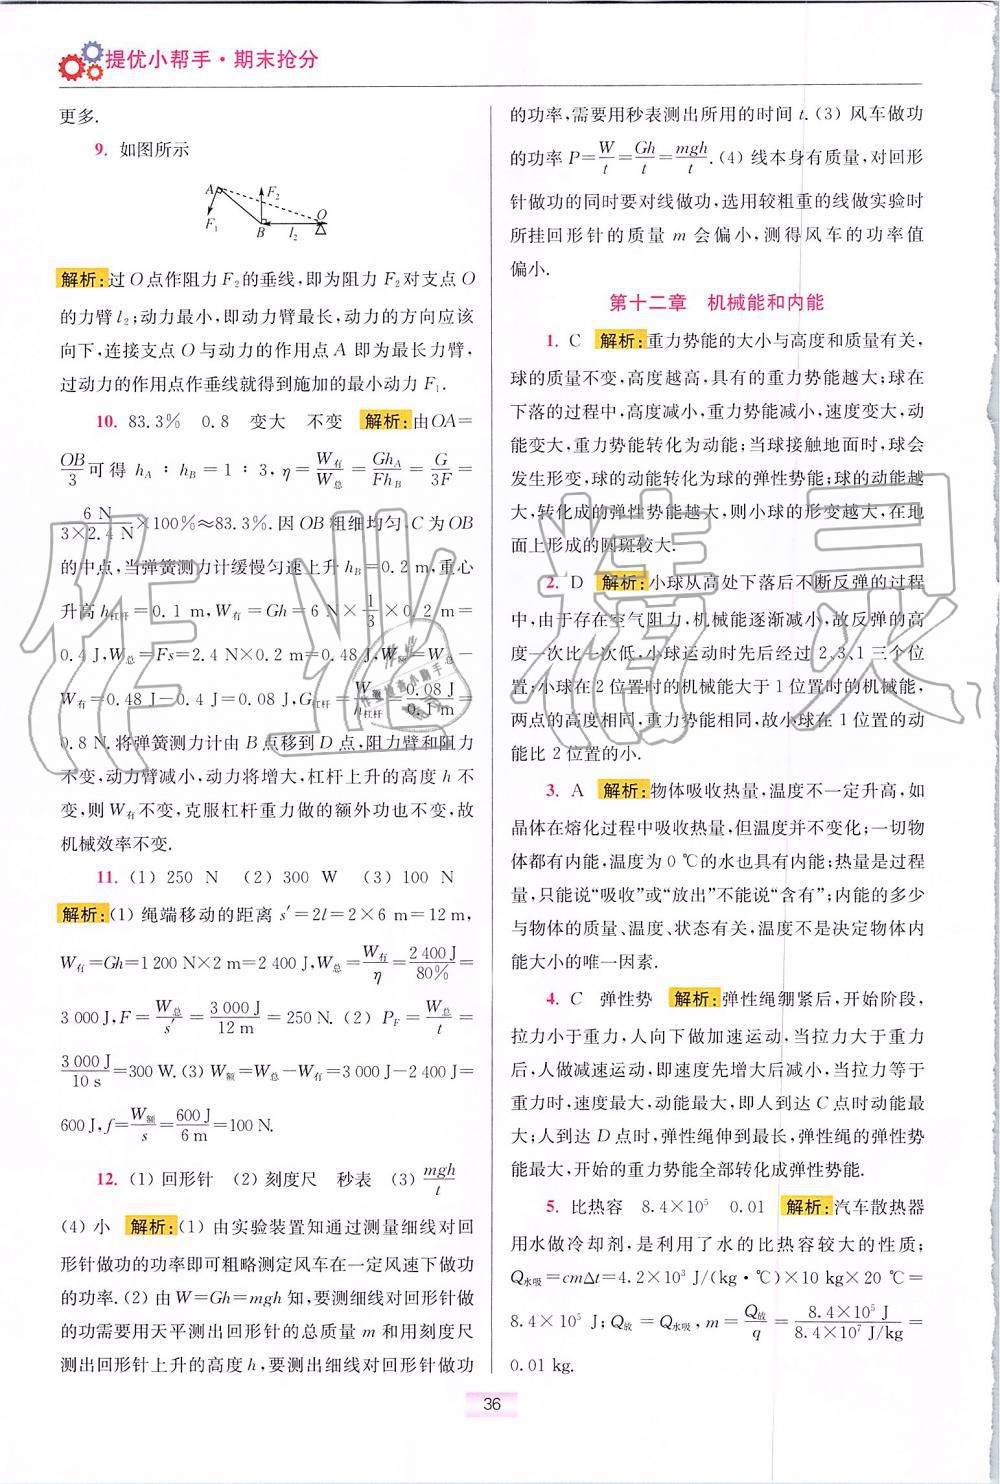 提优小帮手·期末抢分
更多.
9. 如图所示
A F₂ O F₁ B l₂
解析:过O点作阻力F₂的垂线,即为阻力F₂对支点O
的力臂l₂;动力最小,即动力臂最长,动力的方向应该
向下,连接支点O与动力的作用点A即为最长力臂,
过动力的作用点作垂线就得到施加的最小动力F₁.
10. 83.3% 0.8 变大 不变 解析:由OA=
OB/3可得hA∶hB=1∶3,η=W有/W总=GhA/FhB=G/3F=
6 N/3×2.4 N×100%≈83.3%.因OB粗细均匀,C为OB
的中点,当弹簧测力计缓慢匀速上升hB=0.2 m,重心
升高h杠杆=0.1 m,W有=Gh=6 N×1/3×0.2 m=
0.4 J,W总=Fs=2.4 N×0.2 m=0.48 J,W额=W总-
W有=0.48 J-0.4 J=0.08 J,G杠杆=W额/h杠杆=0.08 J/0.1 m=
0.8 N.将弹簧测力计由B点移到D点,阻力臂和阻力
不变,动力臂减小,动力将增大,杠杆上升的高度h不
变,则W有不变,克服杠杆重力做的额外功也不变,故
机械效率不变.
11. (1) 250 N (2) 300 W (3) 100 N
解析:(1) 绳端移动的距离s′=2l=2×6 m=12 m,
W有=Gh=1 200 N×2 m=2 400 J,W总=W有/η=2 400 J/80%=
3 000 J,F=W总/s′=3 000 J/12 m=250 N.(2) PF=W总/t=
3 000 J/10 s=300 W.(3) W额=W总-W有=3 000 J-2 400 J=
600 J,f=W额/s=600 J/6 m=100 N.
12. (1) 回形针 (2) 刻度尺 秒表 (3) mgh/t
(4) 小 解析:(1) 由实验装置知通过测量细线对回
形针做功的功率即可粗略测定风车在一定风速下做功
的功率.(2) 由W=Gh=mgh知,要测细线对回形针做
的功需要用天平测出回形针的总质量m和用刻度尺
测出回形针上升的高度h,要测出细线对回形针做功
的功率,需要用秒表测出所用的时间t.(3) 风车做功
的功率P=W/t=Gh/t=mgh/t.(4) 线本身有质量,对回形
针做功的同时要对线做功,选用较粗重的线做实验时
所挂回形针的质量m会偏小,测得风车的功率值
偏小.
第十二章 机械能和内能
1. C 解析:重力势能的大小与高度和质量有关,
球的质量不变,高度越高,具有的重力势能越大;球在
下落的过程中,高度减小,重力势能减小,速度变大,动
能变大,重力势能转化为动能;当球接触地面时,球会
发生形变,球的动能转化为球的弹性势能;球的动能越
大,转化成的弹性势能越大,则小球的形变越大,在地
面上形成的圆斑较大.
2. D 解析:小球从高处下落后不断反弹的过程
中,由于存在空气阻力,机械能逐渐减小,故反弹的高
度一次比一次低,小球运动时先后经过2、3、1三个位
置;小球在2位置时的机械能大于1位置时的机械能,
两点的高度相同,重力势能相同,故小球在1位置的动
能比2位置的小.
3. A 解析:物体吸收热量,温度不一定升高,如
晶体在熔化过程中吸收热量,但温度并不变化;一切物
体都有内能,温度为0 ℃的水也具有内能;热量是过程
量,只能说“吸收”或“放出”不能说“含有”;内能的多少
与物体的质量、温度、状态有关,温度不是决定物体内
能大小的唯一因素.
4. C 弹性势 解析:弹性绳绷紧后,开始阶段,
拉力小于重力,人向下做加速运动,当拉力大于重力
后,人做减速运动,即速度先增大后减小,当拉力等于
重力时,速度最大,动能最大,即人到达C点时动能最
大;人到达D点时,弹性绳伸到最长,弹性绳的弹性势
能最大,开始的重力势能全部转化成弹性势能.
5. 比热容 8.4×10⁵ 0.01 解析:汽车散热器
用水做冷却剂,是利用了水的比热容较大的性质;
Q水吸=cmΔt=4.2×10³ J/(kg·℃)×10 kg×20 ℃=
8.4×10⁵ J;Q放=Q水吸,m=Q放/q=8.4×10⁵ J/8.4×10⁷ J/kg=
0.01 kg.
36
作业精灵